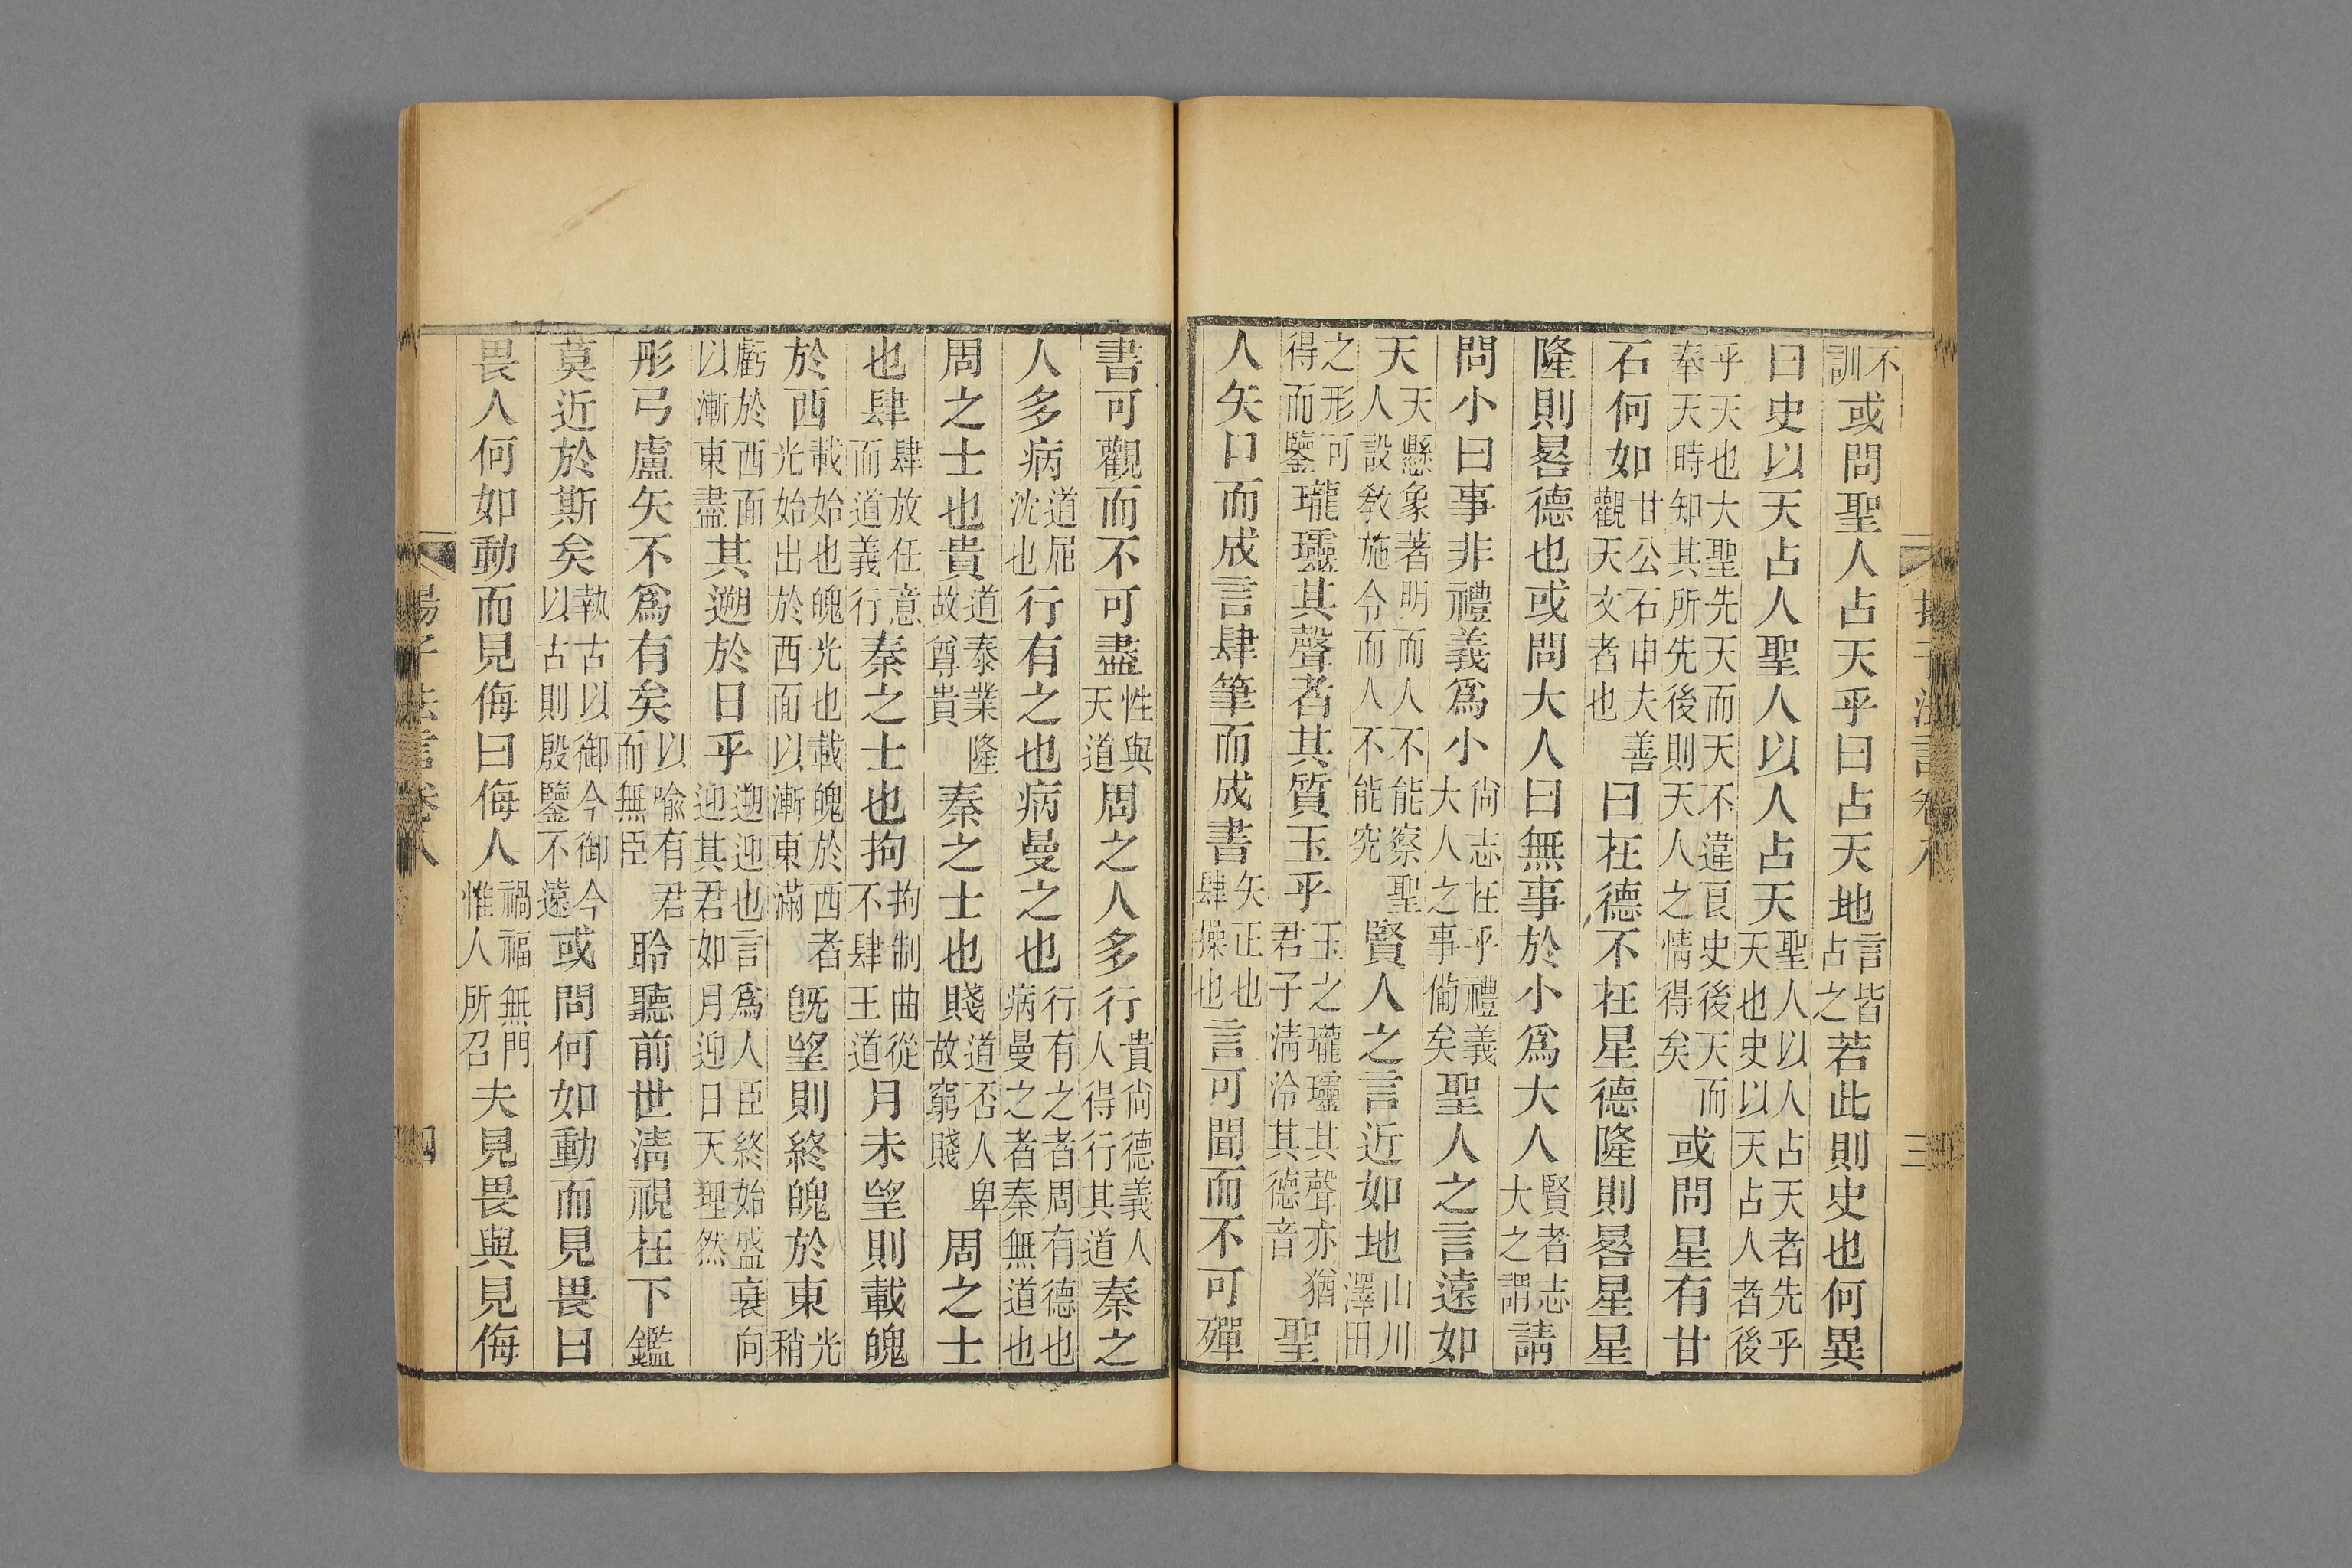 揚子法言卷八 三
不訓或問聖人占天乎曰占天地言皆占之若此則史也何異
曰史以天占人聖人以人占天聖人以人占天者先乎天也史以天占人者後
乎天也大聖先天而天不違良史後天而奉天時知其所先後則天人之情得矣或問星有甘
石何如甘公石申夫善觀天文者也曰在德不在星德隆則晷星星
隆則晷德也或問大人曰無事於小爲大人賢者志大之謂請
問小曰事非禮義爲小尙志在乎禮義大人之事備矣聖人之言遠如
天天懸象著明而人不能察聖人設敎施令而人不能究賢人之言近如地山川澤田
之形可得而鑒瓏𤫊其聲者其質玉乎玉之瓏𤫊其聲亦猶君子淸泠其德音聖
人矢口而成言肆筆而成書矢正也肆操也言可聞而不可殫
書可觀而不可盡性與天道周之人多行貴尙德義人人得行其道秦之
人多病道屈沈也行有之也病曼之也行有之者周有德也病曼之者秦無道也
周之士也貴道泰業隆故尊貴秦之士也賤道否人卑故窮賤周之士
也肆肆放任意而道義行秦之士也拘拘制曲從不肆王道月未望則載魄
於西載始也魄光也載魄於西者光始出於西面以漸東滿旣望則終魄於東光稍
虧於西面以漸東盡其遡於日乎遡迎也言爲人臣終始盛衰向迎其君如月迎日天理然
彤弓盧矢不爲有矣以喩有君而無臣聆聽前世淸視在下鑑
莫近於斯矣執古以御今御今以古則殷鑒不遠或問何如動而見畏曰
畏人何如動而見侮曰侮人禍福無門惟人所召夫見畏與見侮
揚子法言卷八 四